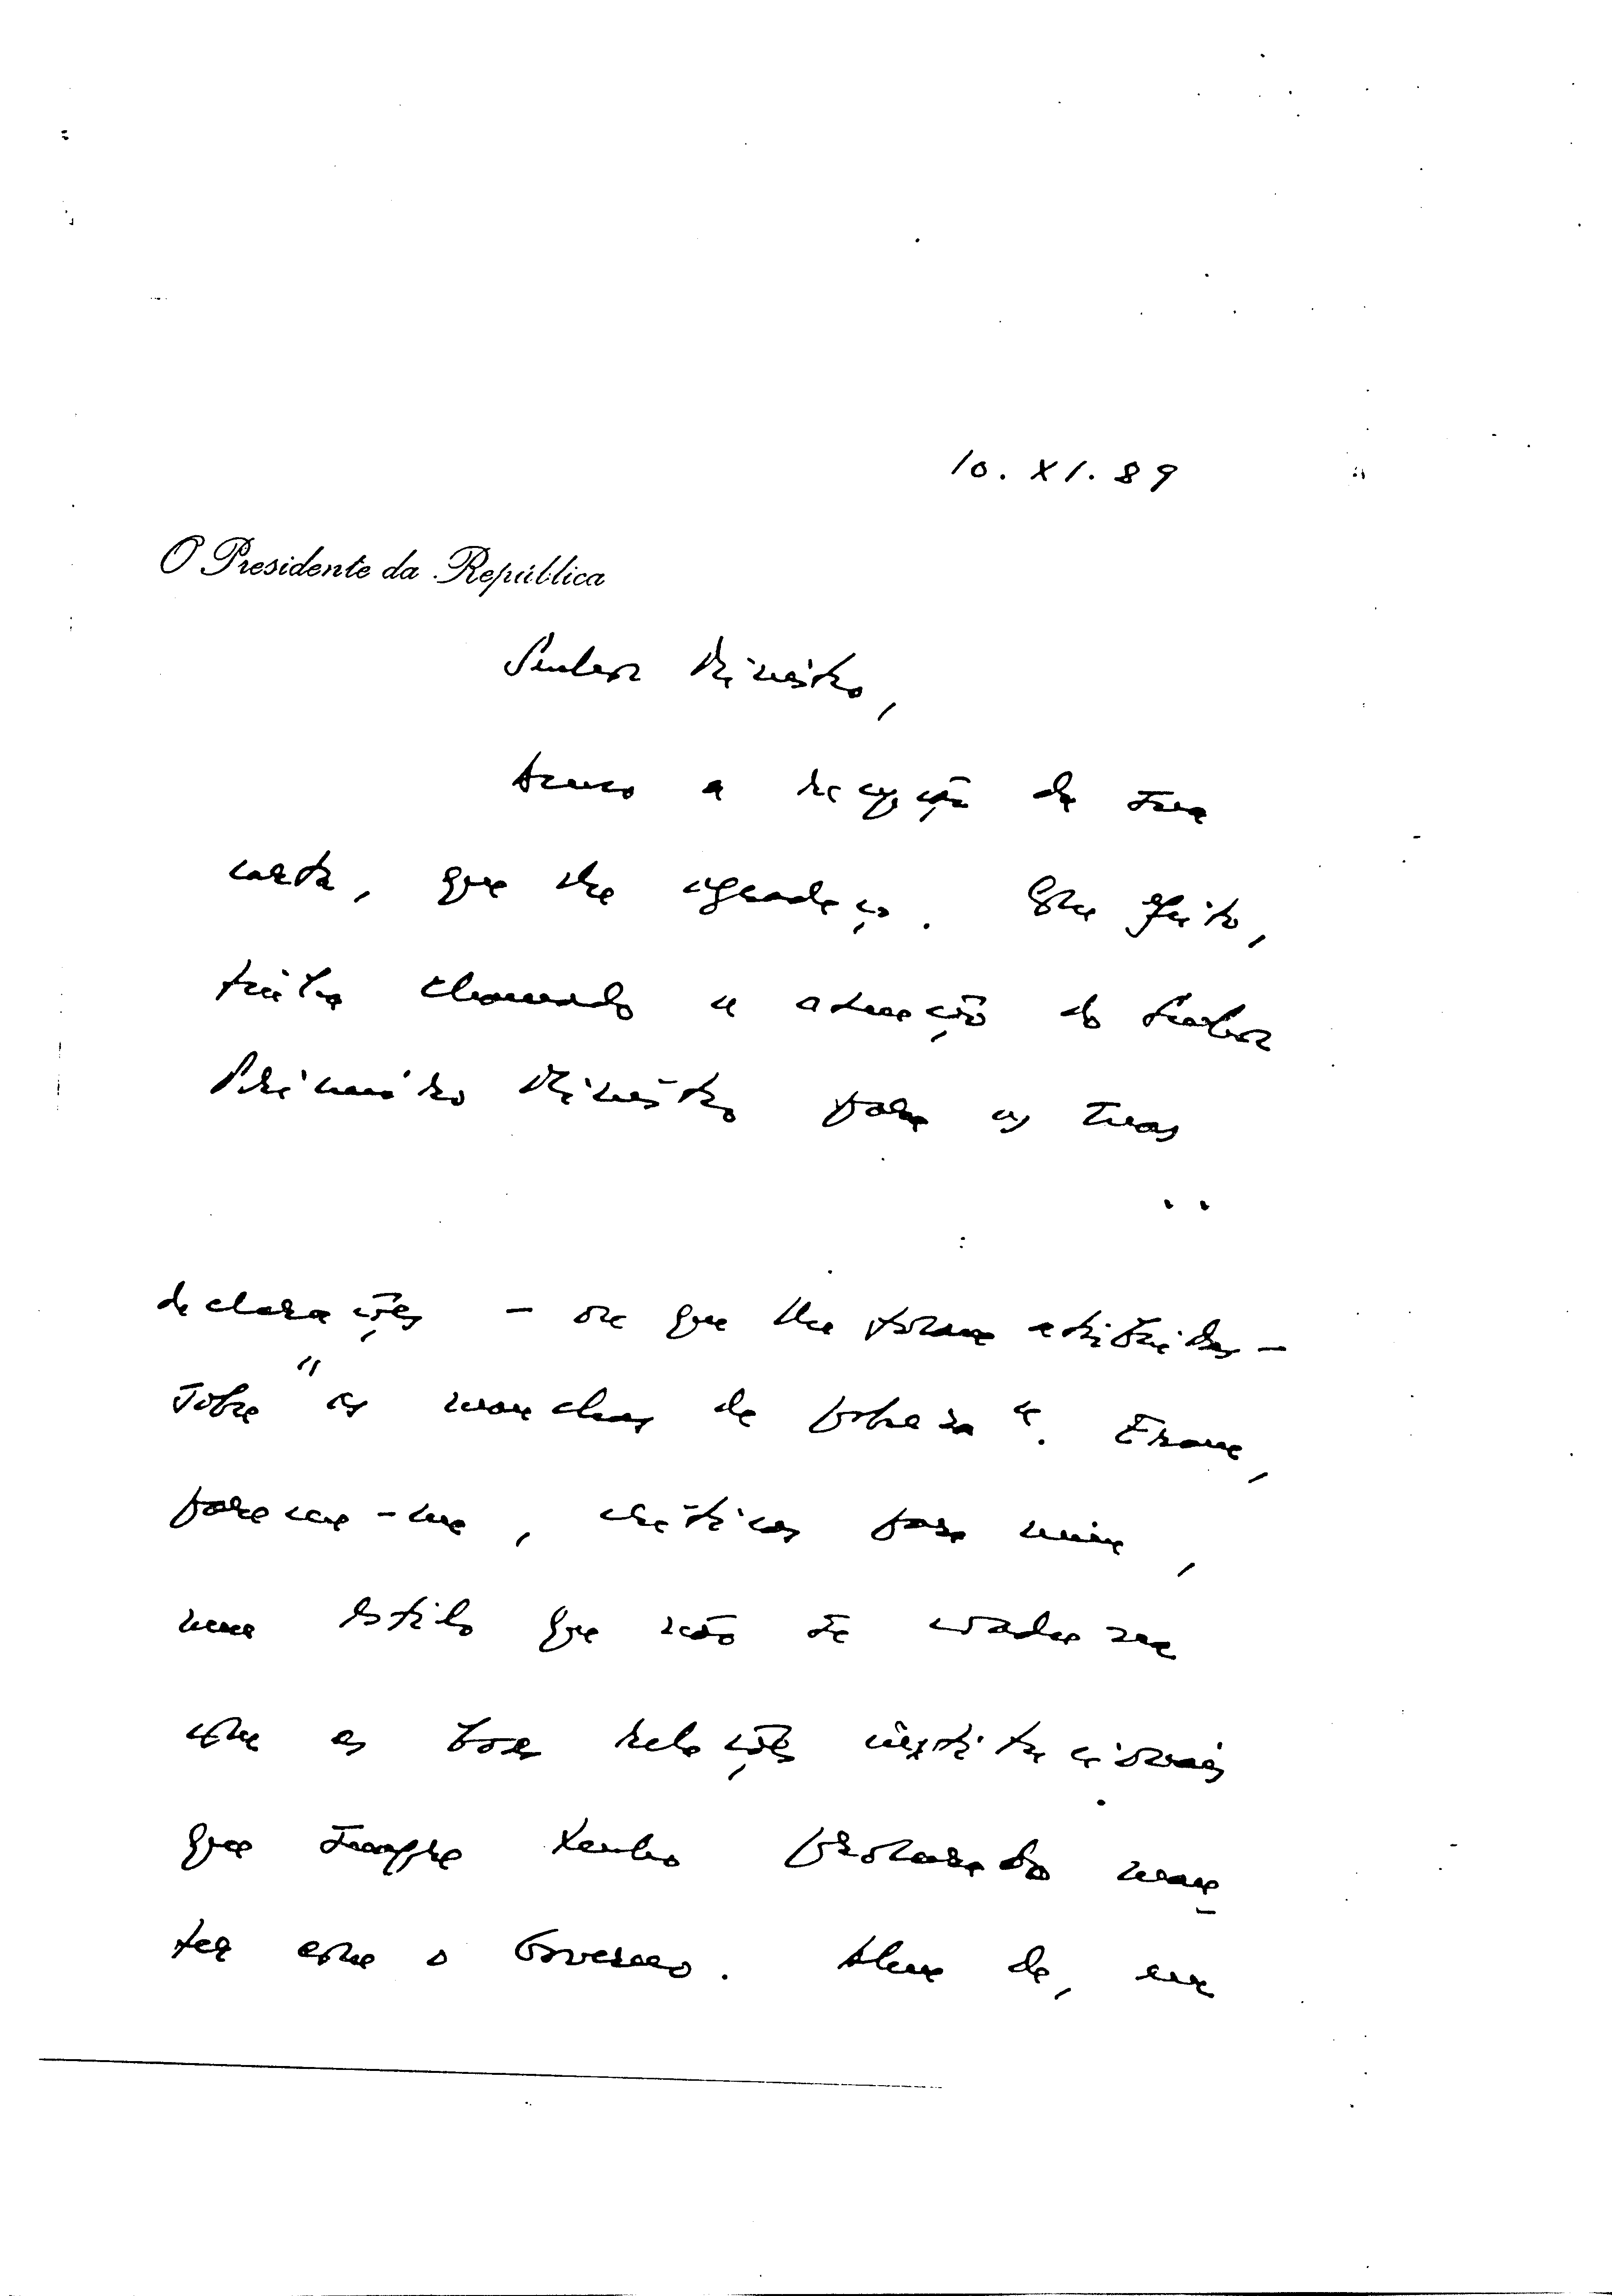 10. XI. 89
O Presidente da República
Senhor Ministro,
Acuso a recepção da sua
carta, que lhe agradeço. Com efeito,
tinha chamado a atenção do Senhor
Primeiro Ministro para as suas
declarações - ou que lhe foram atribuídas -
sobre "as manchas de pobreza". Eram,
parecem-me, críticas para mim,
num estilo que não se coaduna
com as boas relações institucionais
que sempre tenho procurado man-
ter com o Governo. Além de, em